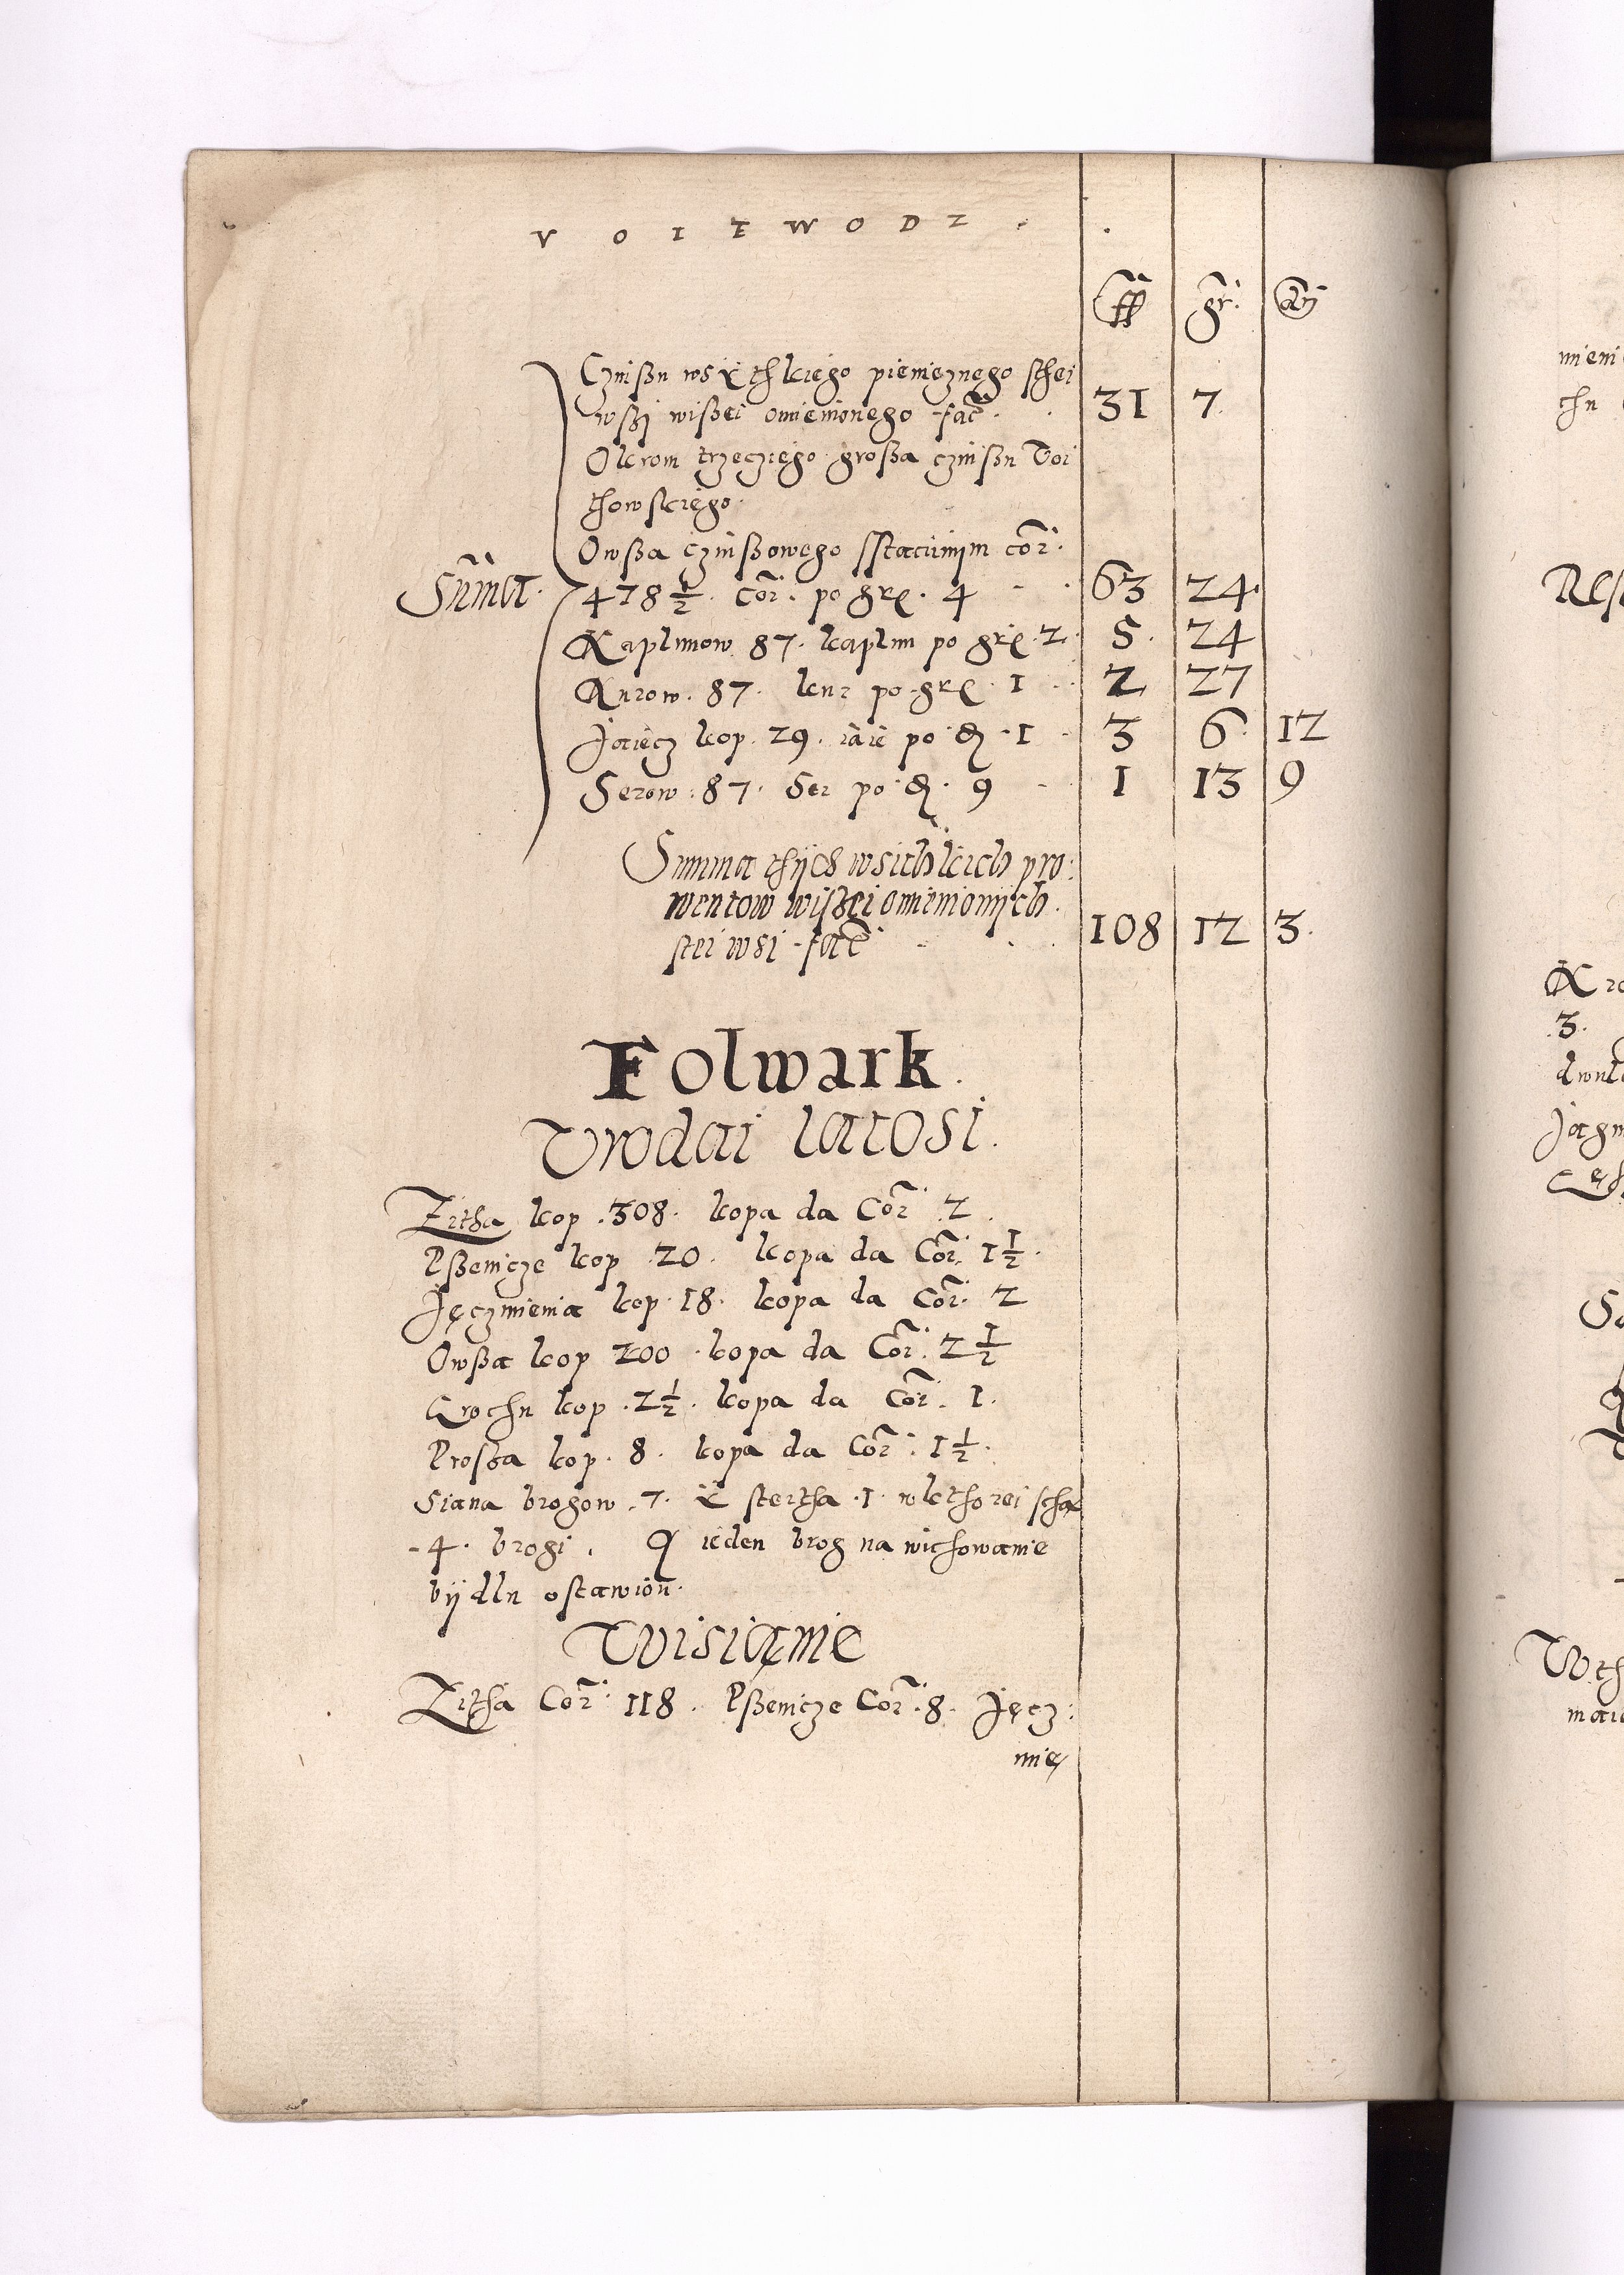 VOITWODZ.
ff gr. d
Czinßu wsÿthkiego pienięznego sthei
wßi wißei omienionego fac̃ 31 7
Okrom trzecziego großa czinßu Voi
thowskiego
Owßa czinßowego sstacunijm cor.
Sum̃a. 478 1/2 Cor. po grẹ. 4 63 24
Kaplunow 87. kaplun po grẹ 2 5. 24
Kurow. 87. kur po grẹ. 1 2 27
Jaiecz kop. 29. iaie po d. 1 3 6 12
Serow. 87. Ser po d. 9 1 13 9
Summa thijch wsithkich pro:
wentow wißei omienionijch
stei wsi fac̃ 108 12 3.
Folwark.
Vrodai latosi.
Zitha kop. 308. kopa da Cor. 2
Pßenicze kop 20. kopa da Cor. 1 1/2.
Jęczmienia kop. 18. kopa da Cor. 2
Owßa kop 200 kopa da Cor. 2 1/2
Grochu kop. 2 1/2. kopa da Cor. 1.
Proßa kop. 8. kopa da Cor. 1 1/2.
Siana brogow. 7. ÿ stertha 1. wkthorei scha
4. brogi. ieden brog na wichowanie
bijdlu ostawion.
Wisianie
Zitha Cor. 118. Pßenicze Cor. 8. Jęcz:
mię